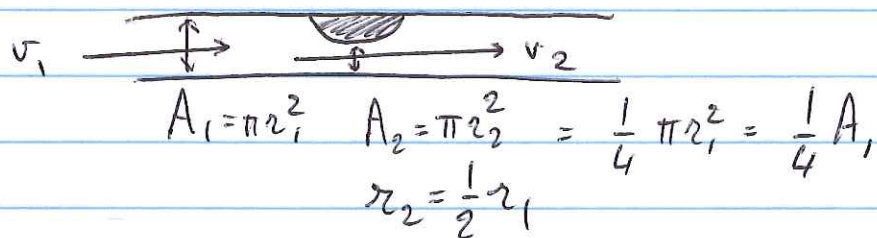 v₁ v₂
A₁ = πr₁² A₂ = πr₂² = 1/4 πr₁² = 1/4 A₁
r₂ = 1/2 r₁